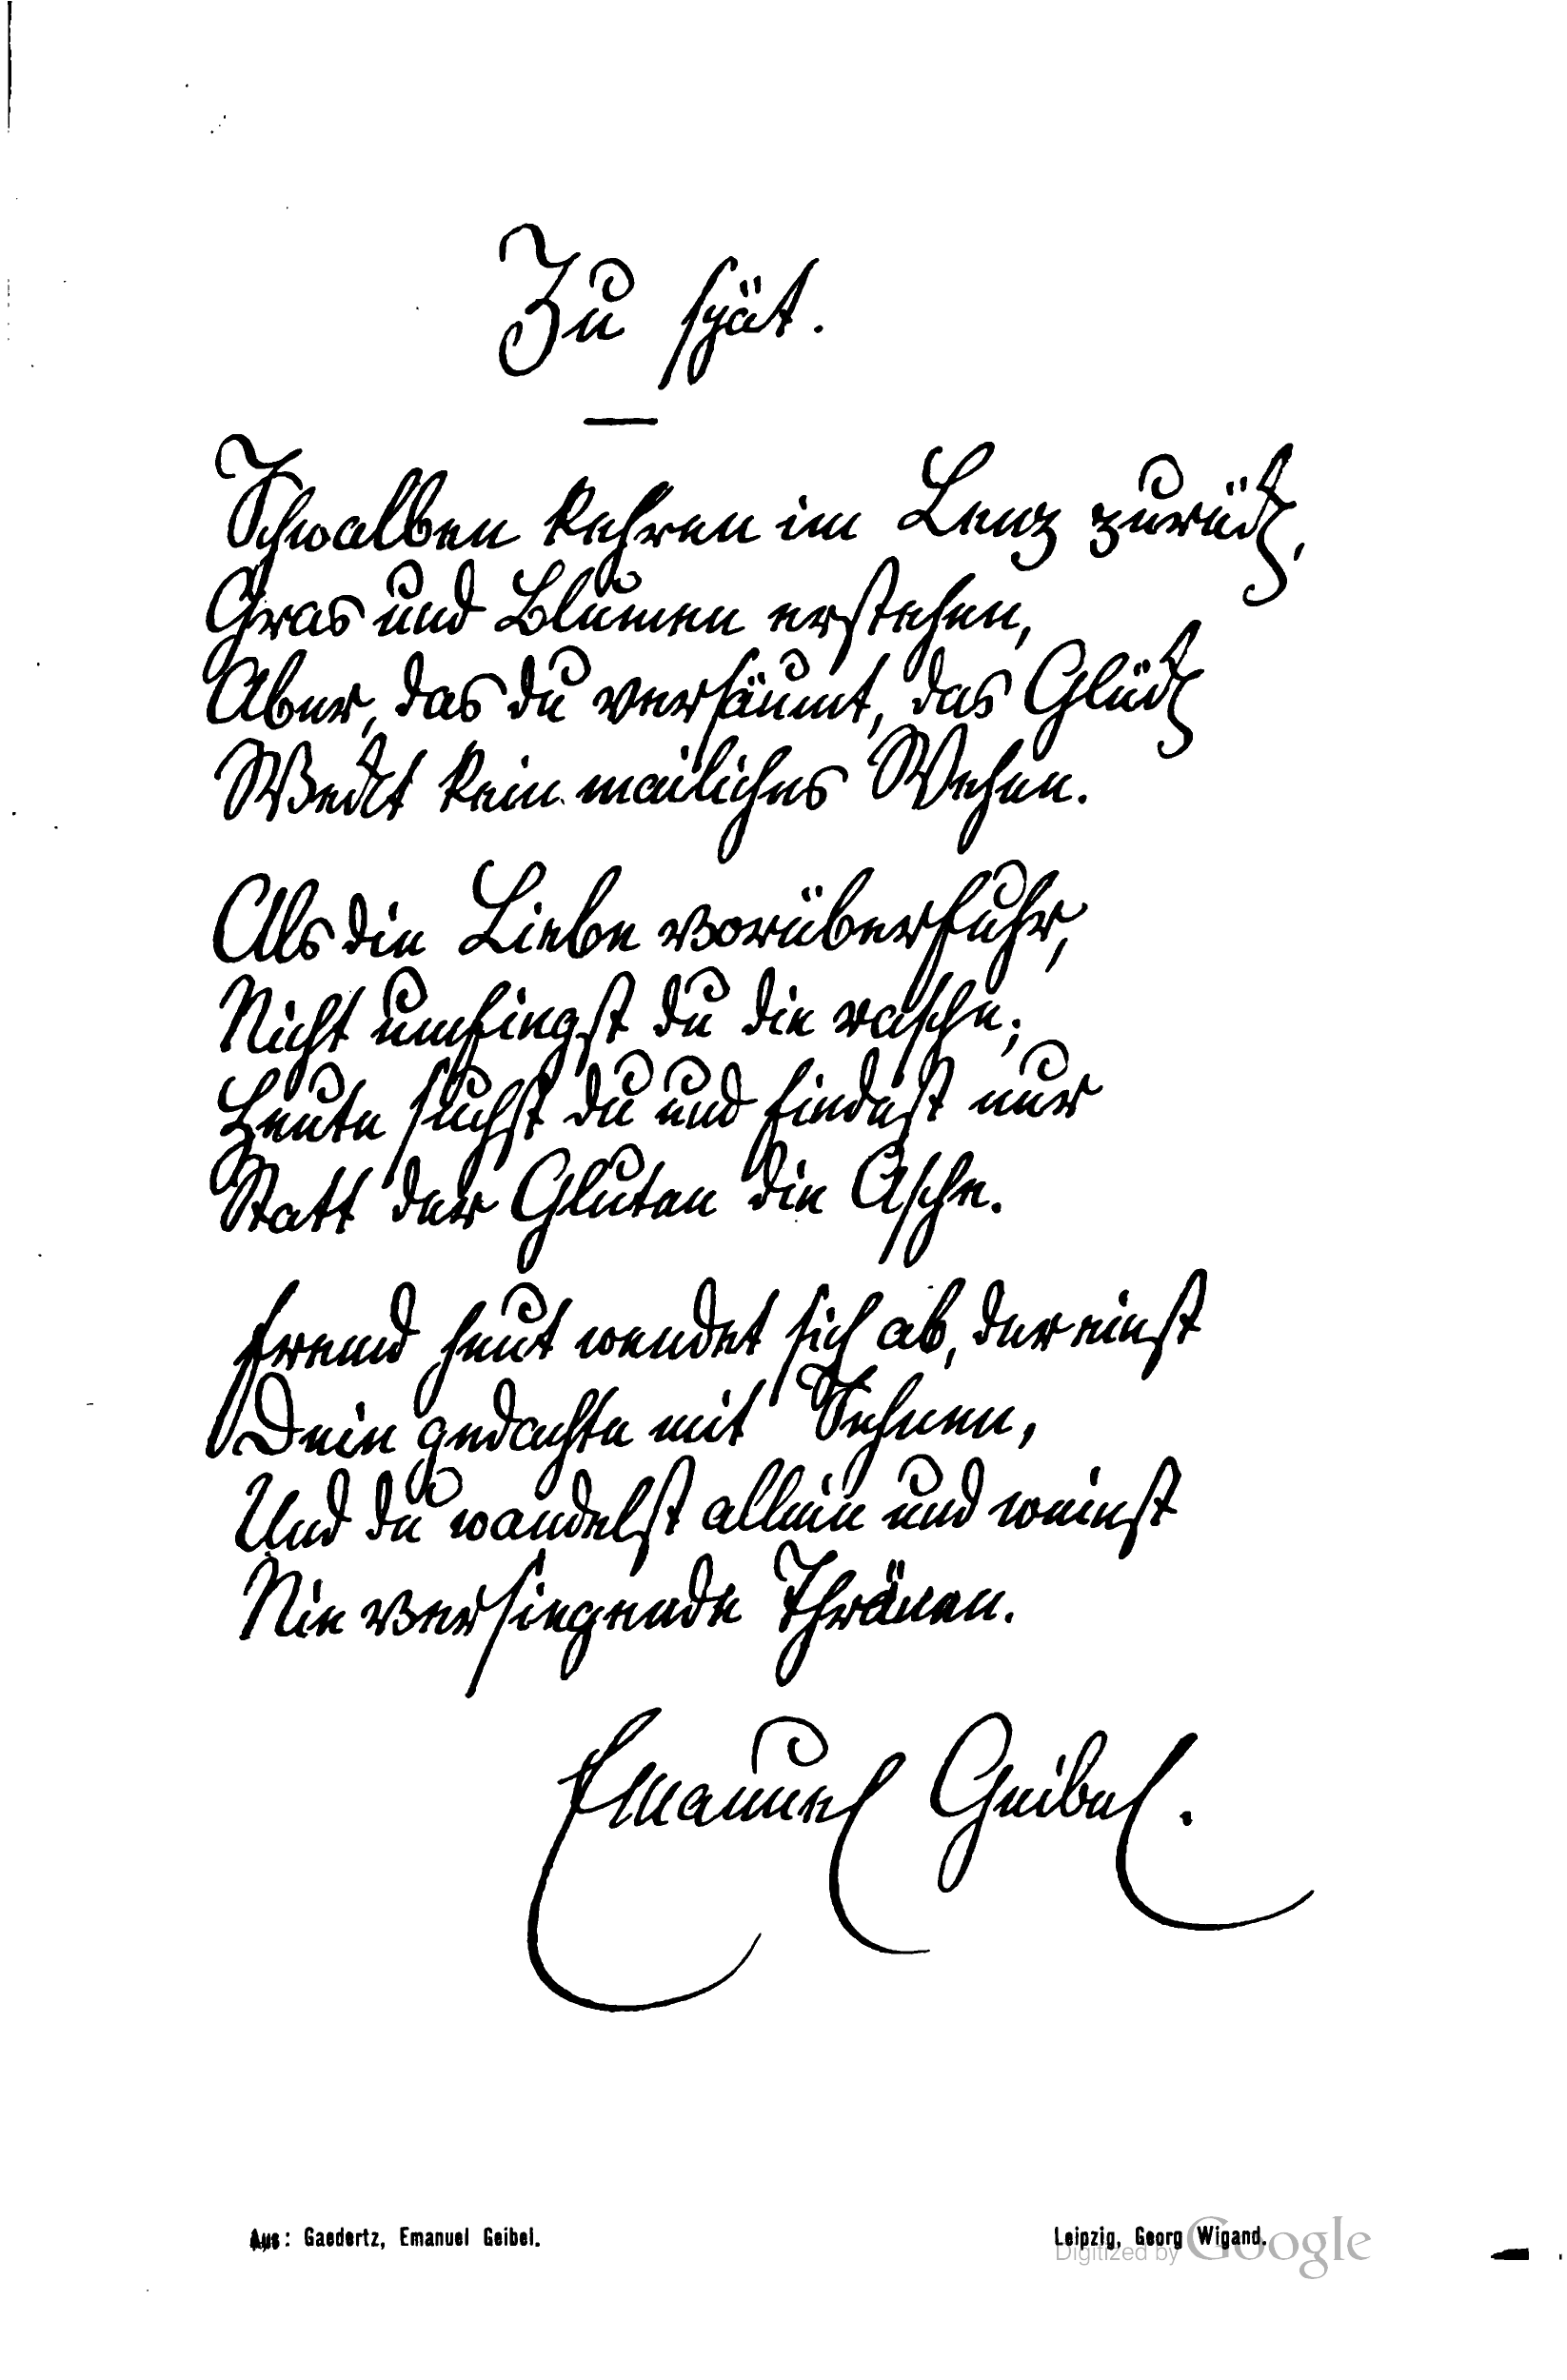 Zu spät.
Schwalben kehren im Lenz zurück,
Gras und Blumen erstehen,
Aber, das du versäumt, das Glück
Weckt kein mailiches Wehen.
Als die Liebe vorüberfuhr,
Nicht umfingst du die rasche;
Heute suchst du und findest nur
Statt der Gluten die Asche.
Fremd heut wendet sich ab, der einst
Dein gedachte mit Sehnen,
Und du wandelst allein und weinst
Nie versiegende Thränen.
Emanuel Geibel.
Aus: Gaedertz, Emanuel Geibel. Leipzig, Georg Wigand.
Digitized by Google